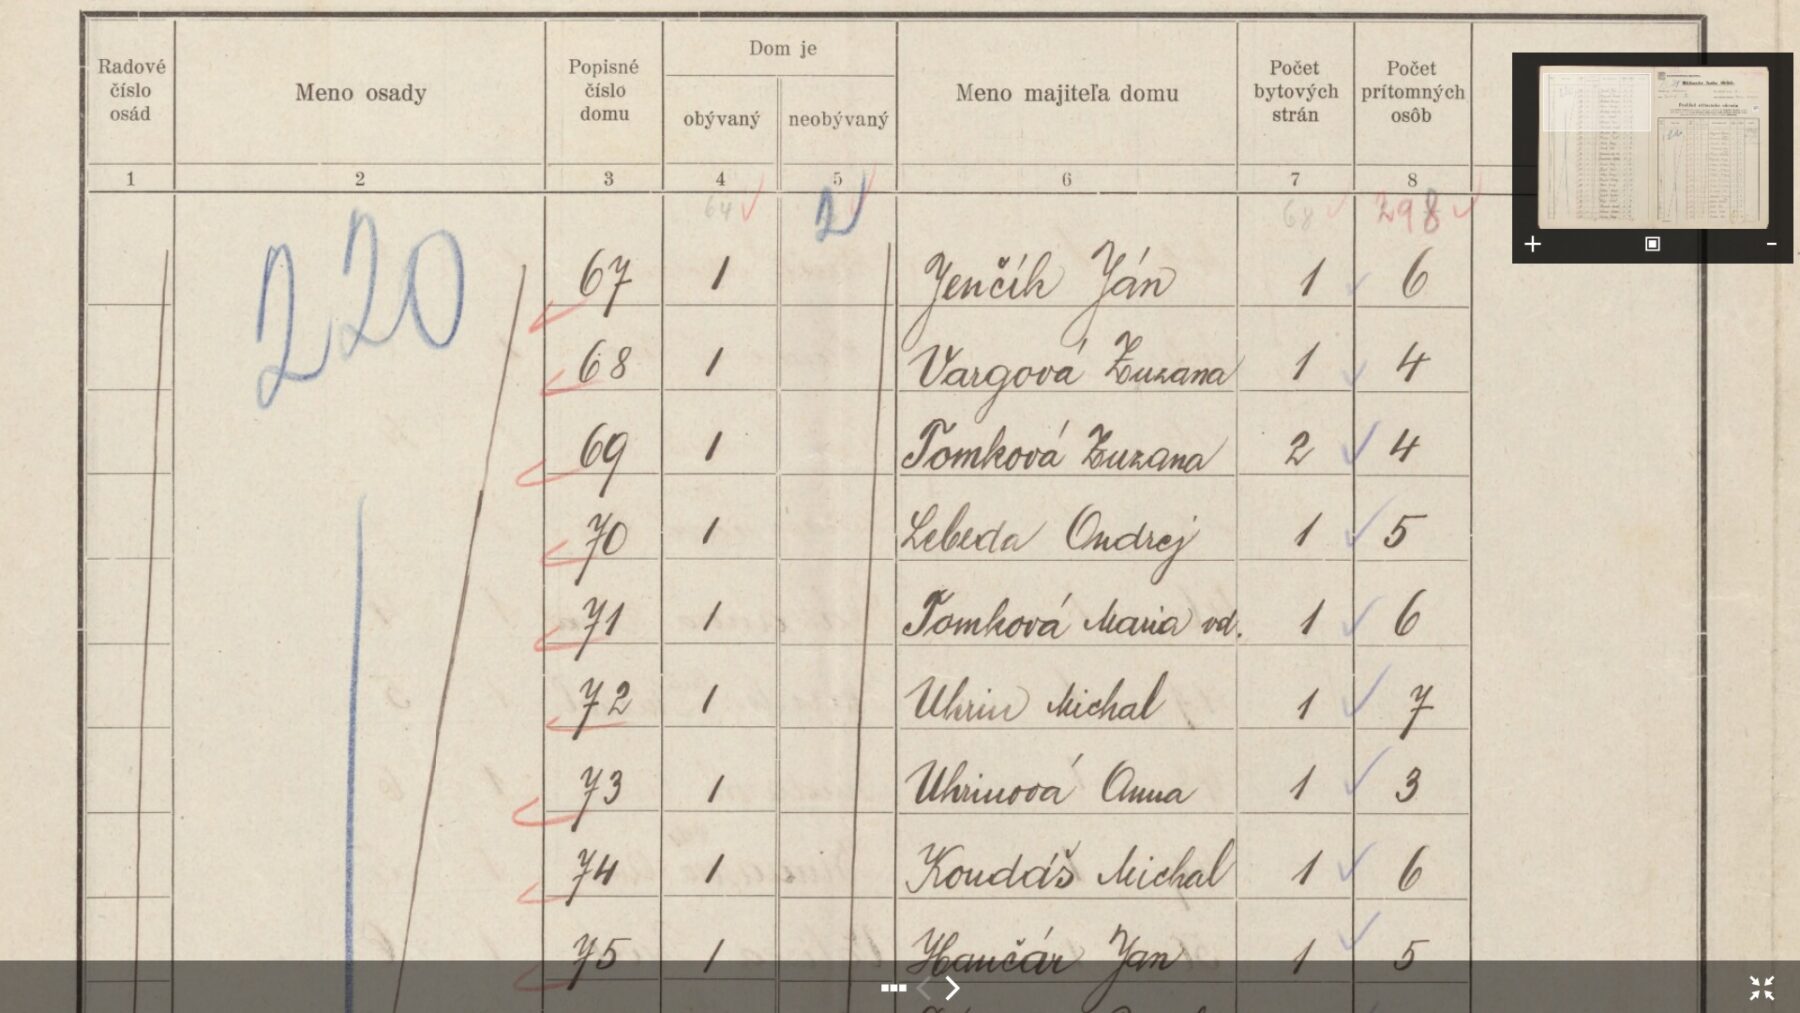 Radové číslo osád
Meno osady
Popisné číslo domu
Dom je
obývaný
neobývaný
Meno majiteľa domu
Počet bytových strán
Počet prítomných osôb
1 2 3 4 5 6 7 8
64 2 68 298
220
67 1 Jenčík Ján 1 6
68 1 Vargová Zuzana 1 4
69 1 Tomková Zuzana 2 4
70 1 Lebeda Ondrej 1 5
71 1 Tomková Maria vd. 1 6
72 1 Uhrin Michal 1 7
73 1 Uhrinová Anna 1 3
74 1 Koudáš Michal 1 6
75 1 Hančár Jan 1 5